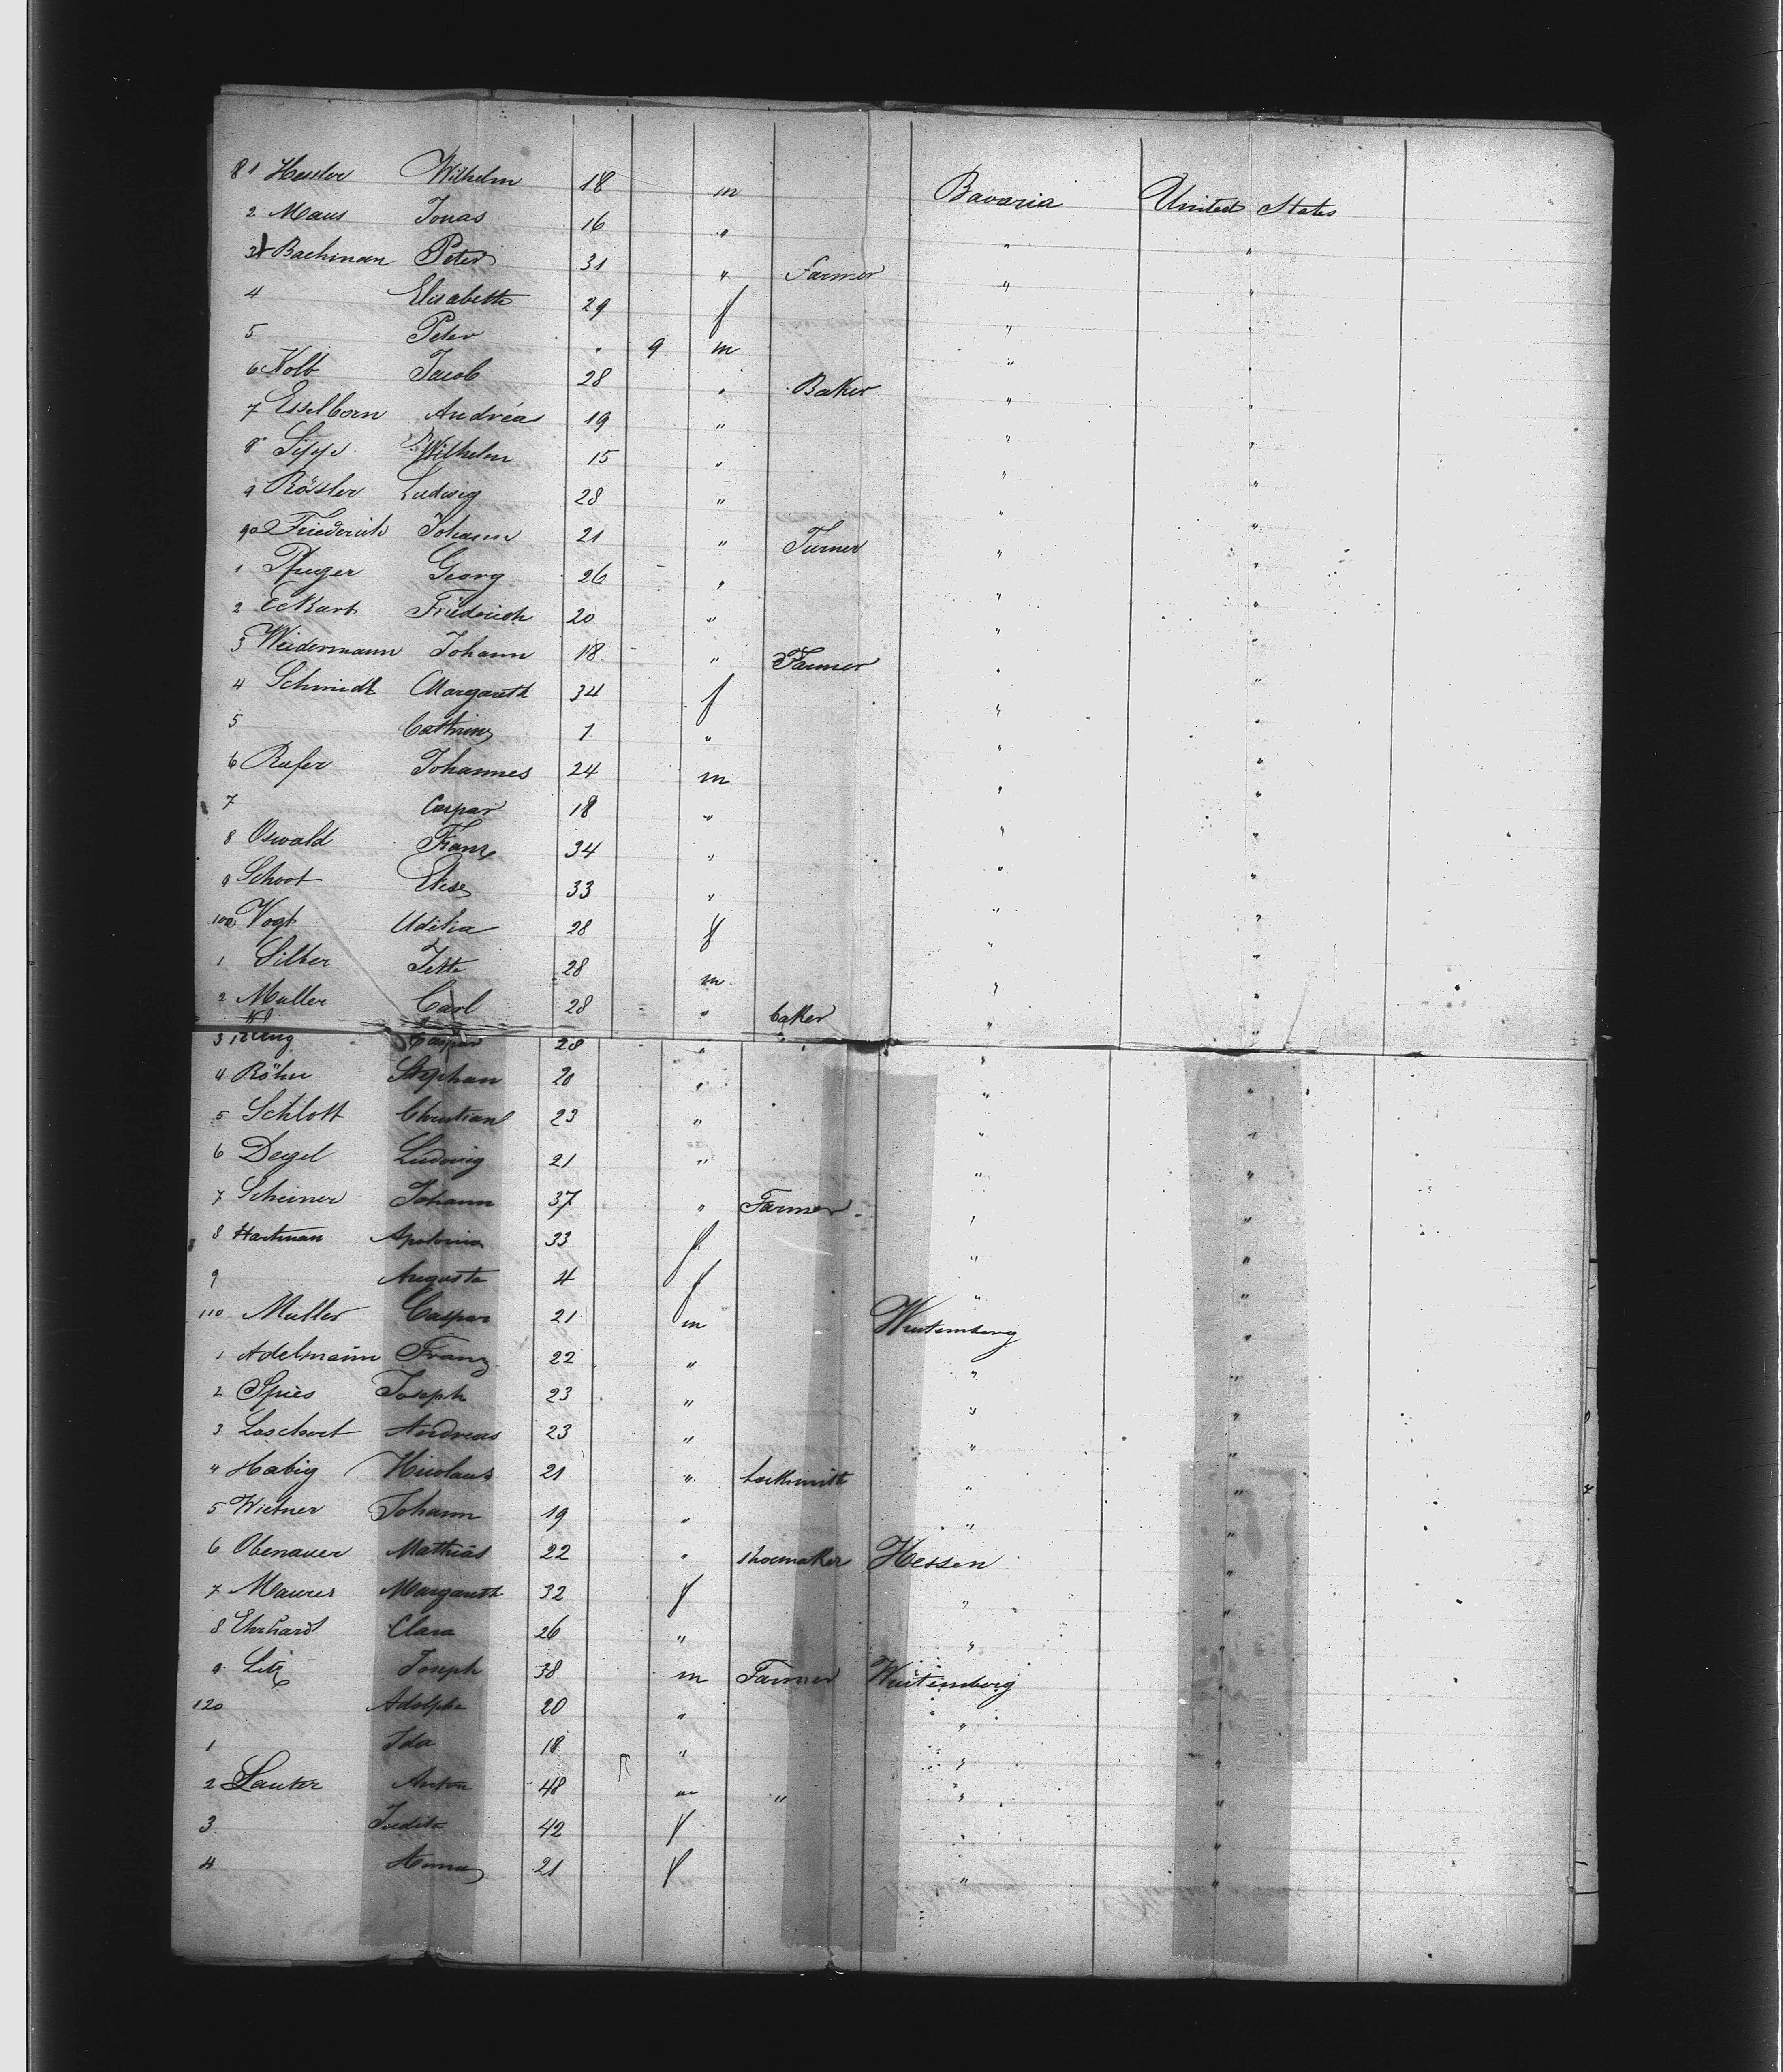 81 Hessler Wilhelm 18 m Bavaria United States
2 Maus Jonas 16 " " "
3 Bachman Peter 31 " Farmer " "
4 Elisabeth 29 f " "
5 Peter " 9 m " "
6 Kolb Jacob 28 " Baker " "
7 Esselborn Andréas 19 " " "
8 Wilhelm 15 " " "
9 Rössler Ludwig 28 " " "
90 Friederich Johann 21 " Turner " "
1 Pfluger Georg 26 " " "
2 Eckart Friederich 20 " " "
3 Weidermann Johann 18 " Farmer " "
4 Schmidt Margareth 34 f " "
5 Cathrina 1 " " "
6 Rufer Johannes 24 m " "
7 Caspar 18 " " "
8 Oswald Franz 34 " " "
9 Schoot Elise 33 " " "
100 Vogt Udilia 28 f " "
1 Silber Jette 28 m " "
2 Muller Carl 28 " baker " "
3 Kling Caspar 28 " " "
4 Röhn Stephan 20 " " "
5 Schlott Christian 23 " " "
6 Degel Ludwig 21 " " "
7 Scheiner Johann 37 " Farmer " "
8 Hartman Apolonia 33 f " "
9 Augusta 4 f " "
110 Muller Caspar 21 m Wurtemberg "
1 Adelmann Franz 22 " " "
2 Spies Joseph 23 " " "
3 Andreas 23 " " "
4 Habig Nicolaus 21 " Locksmith " "
5 Wietner Johann 19 " " "
6 Obenauer Mathias 22 " shoemaker Hessen "
7 Maurer Margareth 32 f " "
8 Ehrhardt Clara 26 " " "
9 Litz Joseph 38 m Farmer Wurtemberg "
120 Adolphe 20 " " "
1 Ida 18 " " "
2 Lauter Anton 48 m " " "
3 Judita 42 f " "
4 Anna 21 f " "